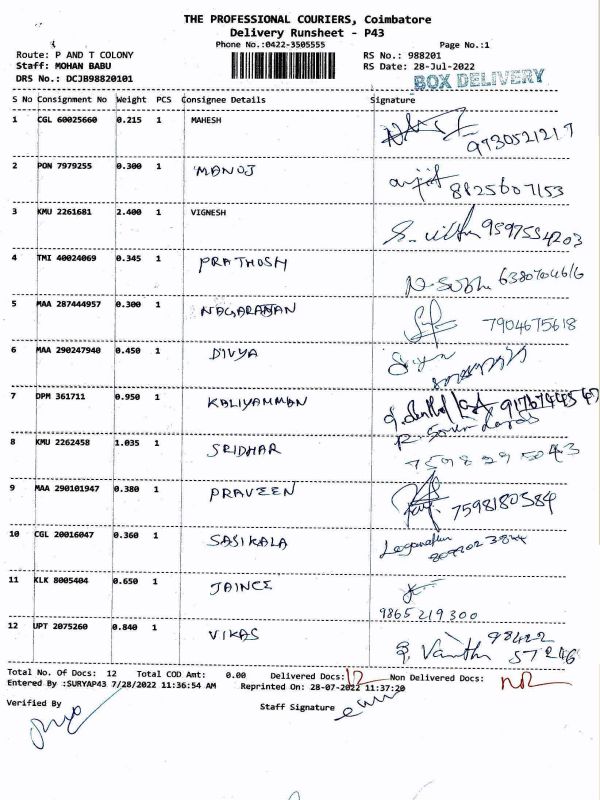 THE PROFESSIONAL COURIERS, Coimbatore
Delivery Runsheet - P43
Phone No.:0422-3505555
Page No.:1
Route: P AND T COLONY
RS No.: 988201
Staff: MOHAN BABU
RS Date: 28-Jul-2022
DRS No.: DCJB98820101
BOX DELIVERY
S No Consignment No Weight PCS Consignee Details Signature
1 CGL 60025660 0.215 1 MAHESH
9730521217
2 PON 7979255 0.300 1 MANOJ
8825607153
3 KMU 2261681 2.400 1 VIGNESH
9597554203
4 TMI 40024069 0.345 1 PRATHOSH
6380704616
5 MAA 287444957 0.300 1 NAGARAJAN
7904675618
6 MAA 290247940 0.450 1 DIVYA
7 DPM 361711 0.950 1 KALIYAMMAN
8 KMU 2262458 1.035 1 SRIDHAR
7598295043
9 MAA 290101947 0.380 1 PRAVEEN
7598180584
10 CGL 20016047 0.360 1 SASIKALA
11 KLK 8005404 0.650 1 JAINCE
9865219300
12 UPT 2075260 0.840 1 VIKAS
98422
57246
Total No. Of Docs: 12 Total COD Amt: 0.00 Delivered Docs: 12 Non Delivered Docs:
Entered By :SURYAP43 7/28/2022 11:36:54 AM Reprinted On: 28-07-2022 11:37:20
Verified By
Staff Signature